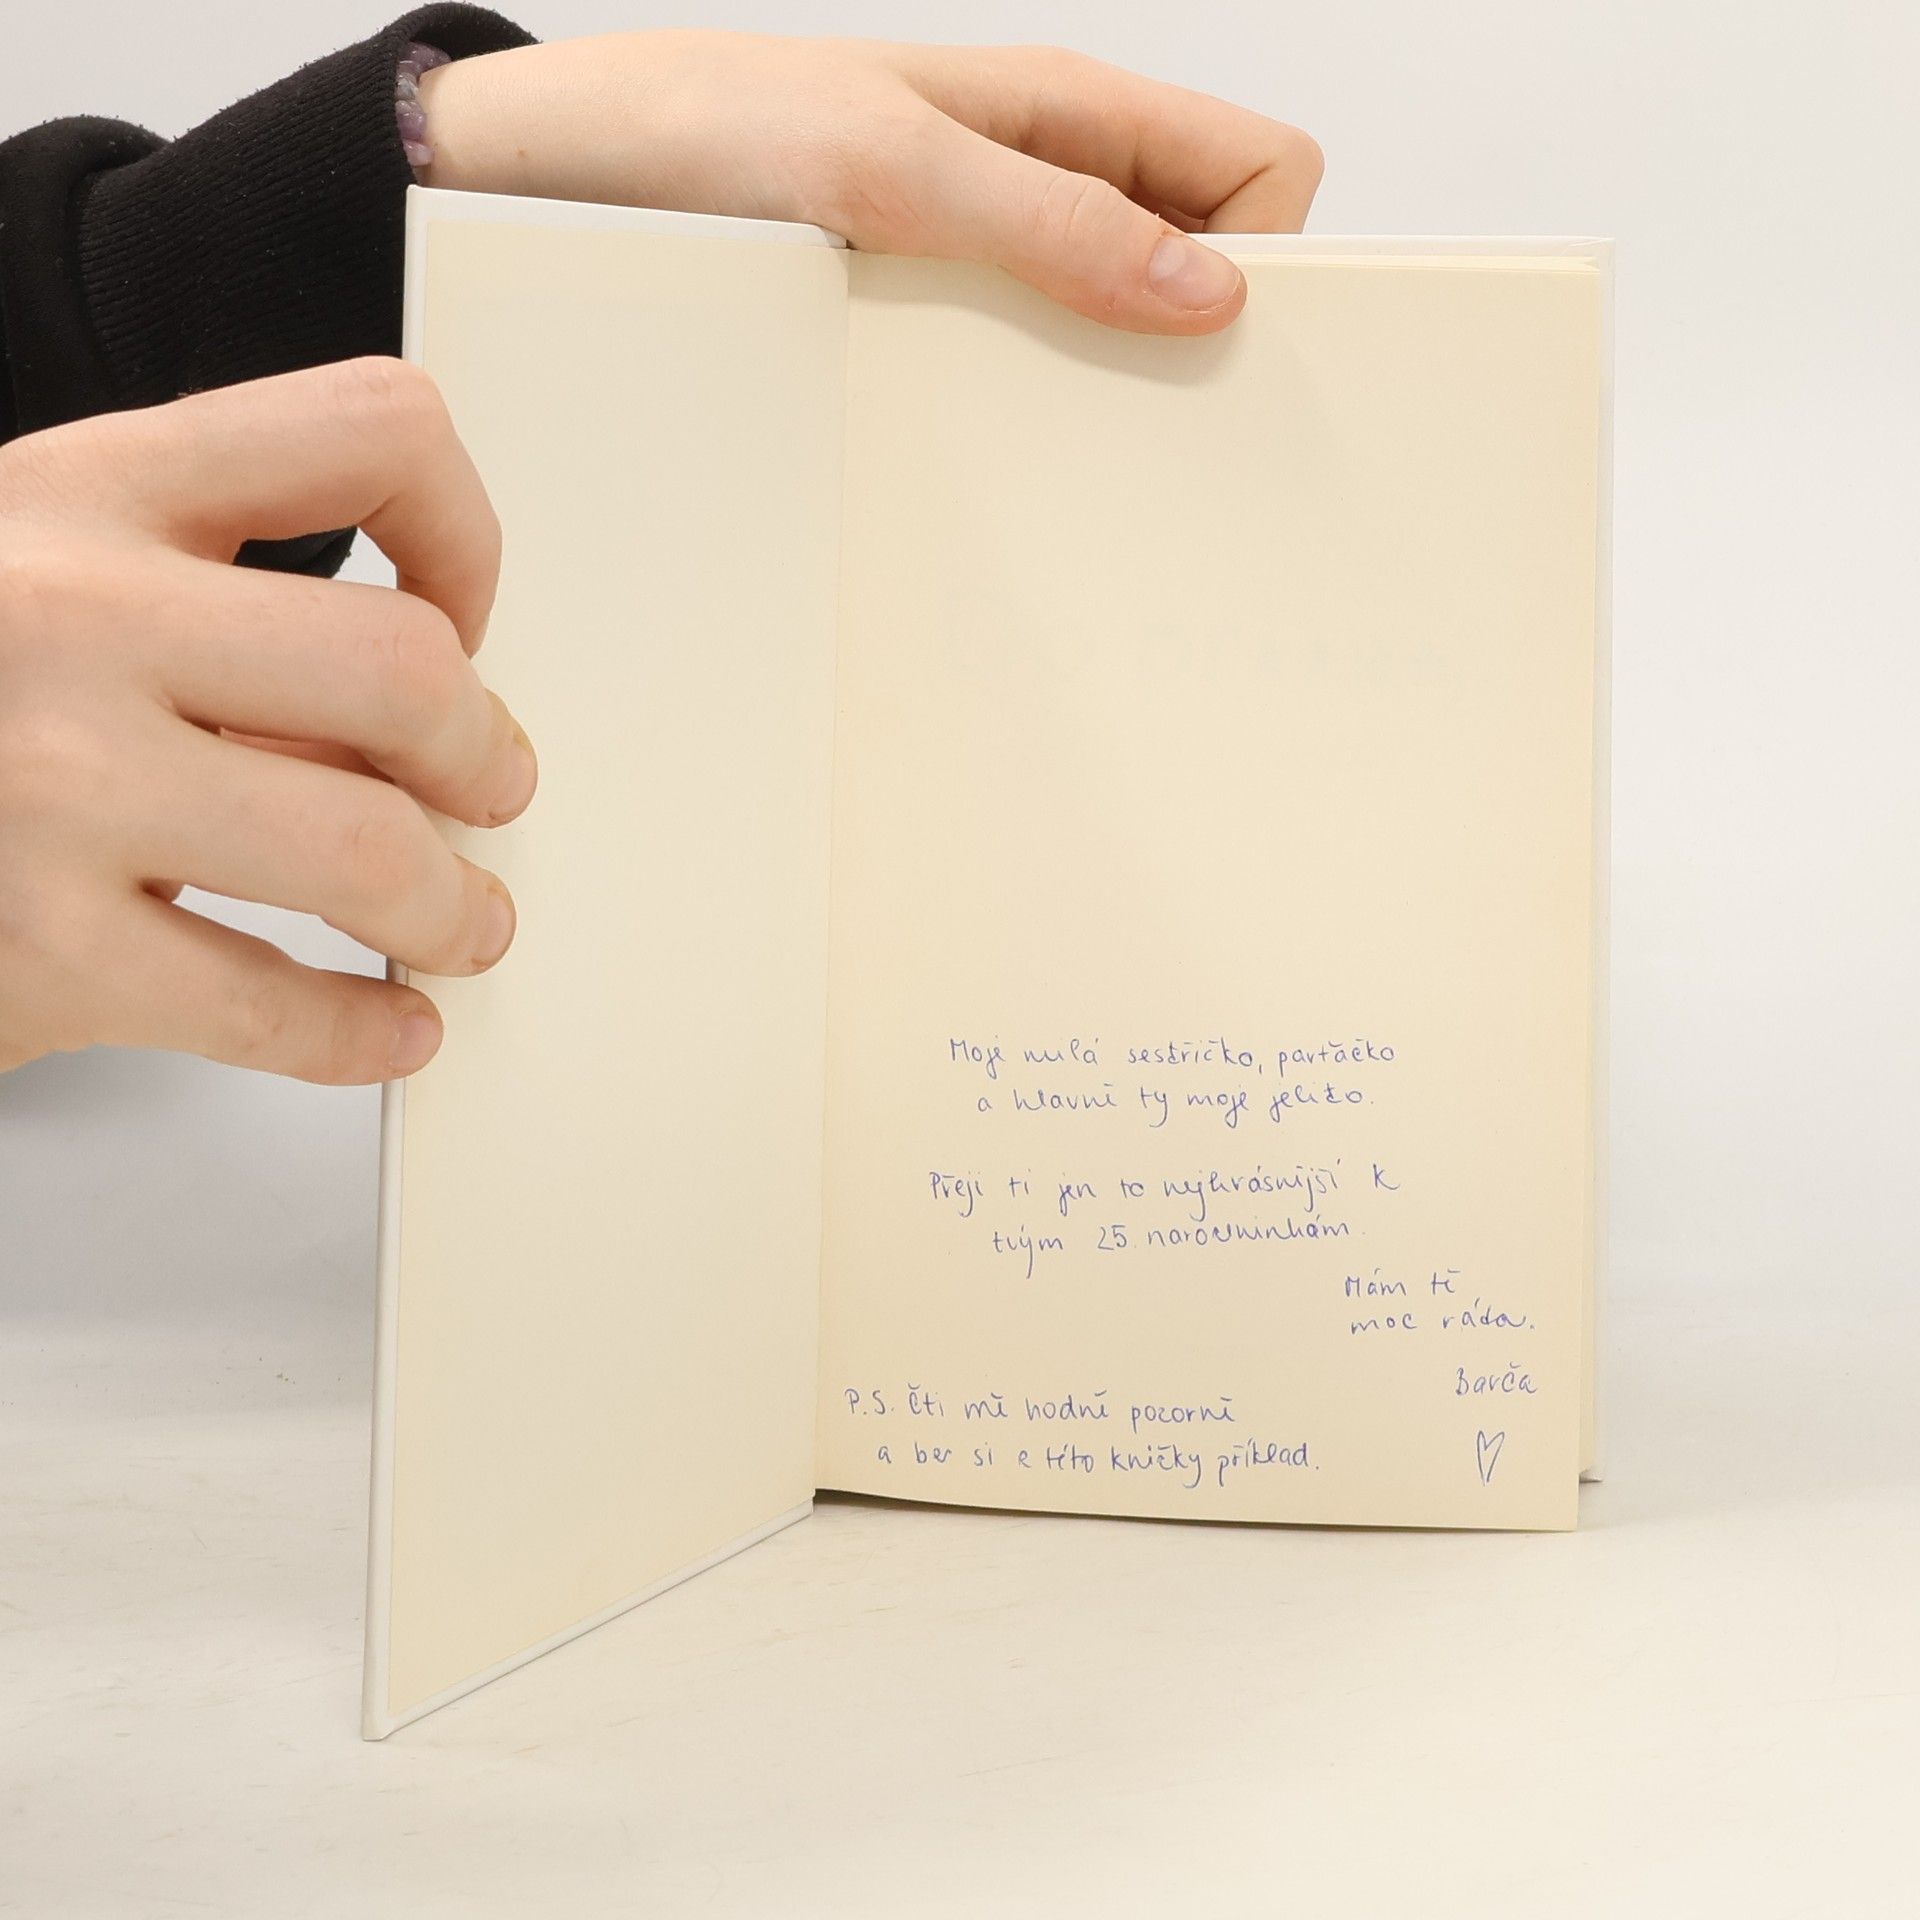 Moje milá sestřičko, parťačko
a hlavně ty moje jelito.
Přeji ti jen to nejkrásnější k
tvým 25. narozninkám.
Mám tě
moc ráda.
Barča
P.S. Čti mě hodně pozorně
a ber si z této knížky příklad.